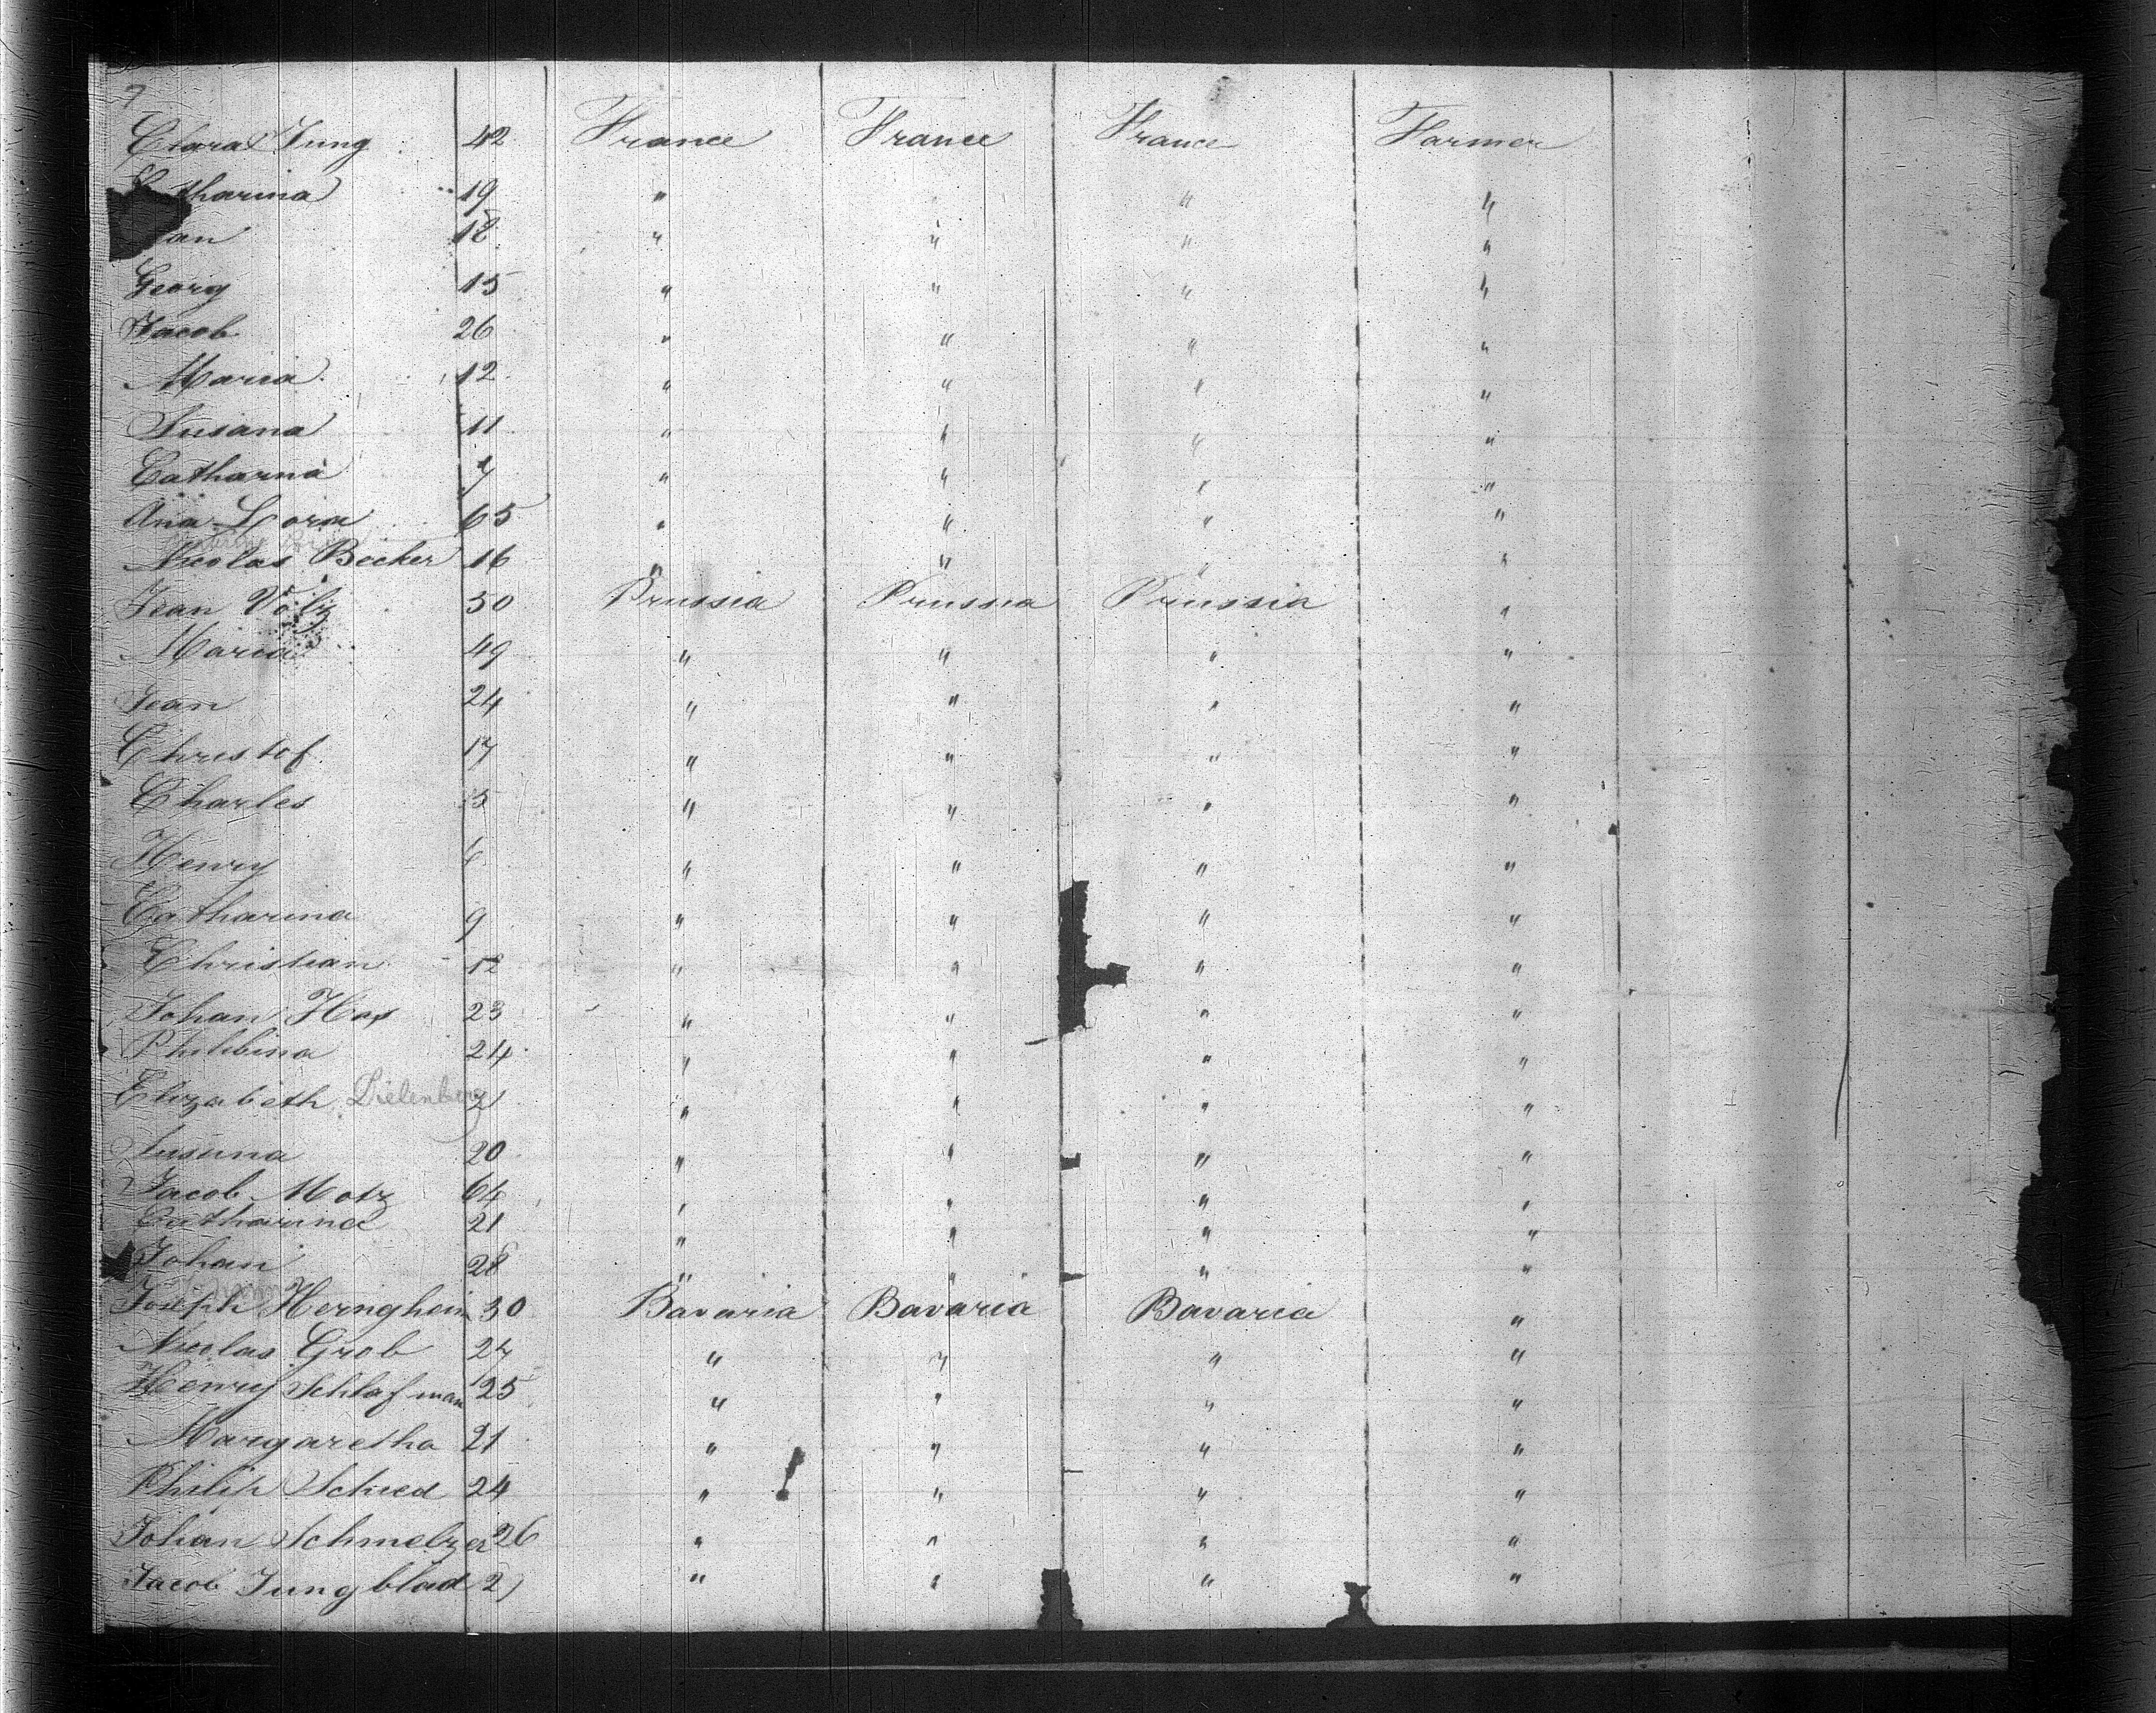 7
Clara Jung 42 France France France Farmer
tharina 19 " " "
an 18 " " " "
Georg 15 " " " "
Jacob 26 " " " "
Maria 12 " " " "
Susana 11 " " " "
Catharna 7 " " " "
Ana Lora 65 " " " "
Nicolas Becker 16 " " " "
Jean Völz 50 Prussia Prussia Prussia "
Maria 49 " " " "
Jean 24 " " " "
Christof 17 " " " "
Charles 5 " " " "
Henry " " " "
Catharina 9 " " " "
Christian 12 " " " "
Johan 23 " " " "
Philibina 24 " " " "
Elizabeth Dielenberg 2 " " " "
Susanna 20 " " " "
Jacob Motz 64 " " " "
Catharina 21 " " " "
Johan 28 " " " "
Joseph Hernghein 30 Bavaria Bavaria Bavaria "
Nicolas Grob 27 " " " "
Henry Schlafman 25 " " " "
Margaretha 21 " " " "
Philip Schied 24 " " " "
Johan Schmelzer 26 " " " "
Jacob Jungblad " " " "